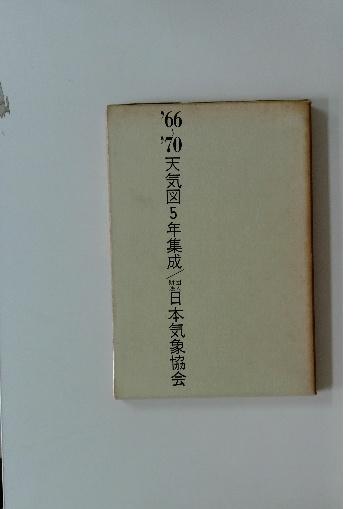 '66〜'70天気図5年集成/財団法人日本気象協会